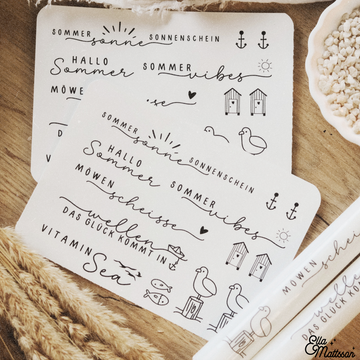 SOMMER sonne SONNENSCHEIN
HALLO
Sommer
SOMMER vibes
MÖWEN
se
SOMMER sonne SONNENSCHEIN
HALLO
Sommer
SOMMER vibes
MÖWEN scheisse
wellen
DAS GLÜCK KOMMT IN
VITAMIN Sea
MÖWEN
DAS GLÜCK
Ella Mattsson